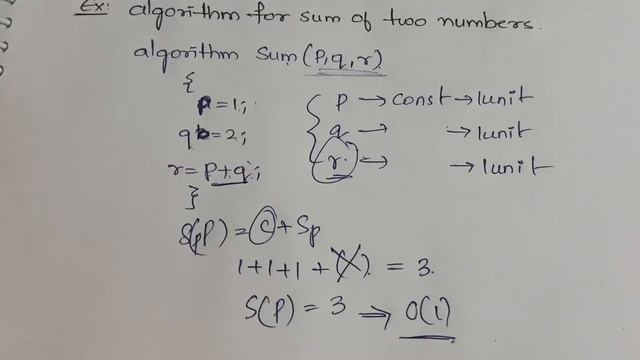 Ex: algorithm for sum of two numbers.
algorithm sum(p,q,r)
{
p=1; p → const → 1unit
q=2; q → → 1unit
r=p+q; r. → → 1unit
}
S(P) = C + Sp
1+1+1 + = 3.
S(P) = 3 ⇒ O(1)